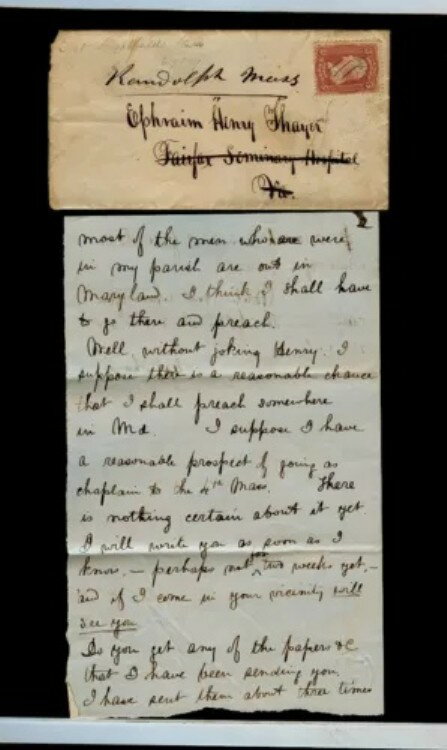 Randolph Mass
Ephraim Henry Thayer
Fairfax Seminary Hospital
Va.
2
most of the men who are were
in my parish are out in
Maryland. I think I shall have
to go there and preach.
Well without joking Henry. I
suppose there is a reasonable chance
that I shall preach somewhere
in Md. I suppose I have
a reasonable prospect of going as
chaplain to the 4th Mass. There
is nothing certain about it yet.
I will write you as soon as I
know, — perhaps not for two weeks yet, —
and if I come in your vicinity will
see you
Do you get any of the papers &c
that I have been sending you
I have sent them about three times